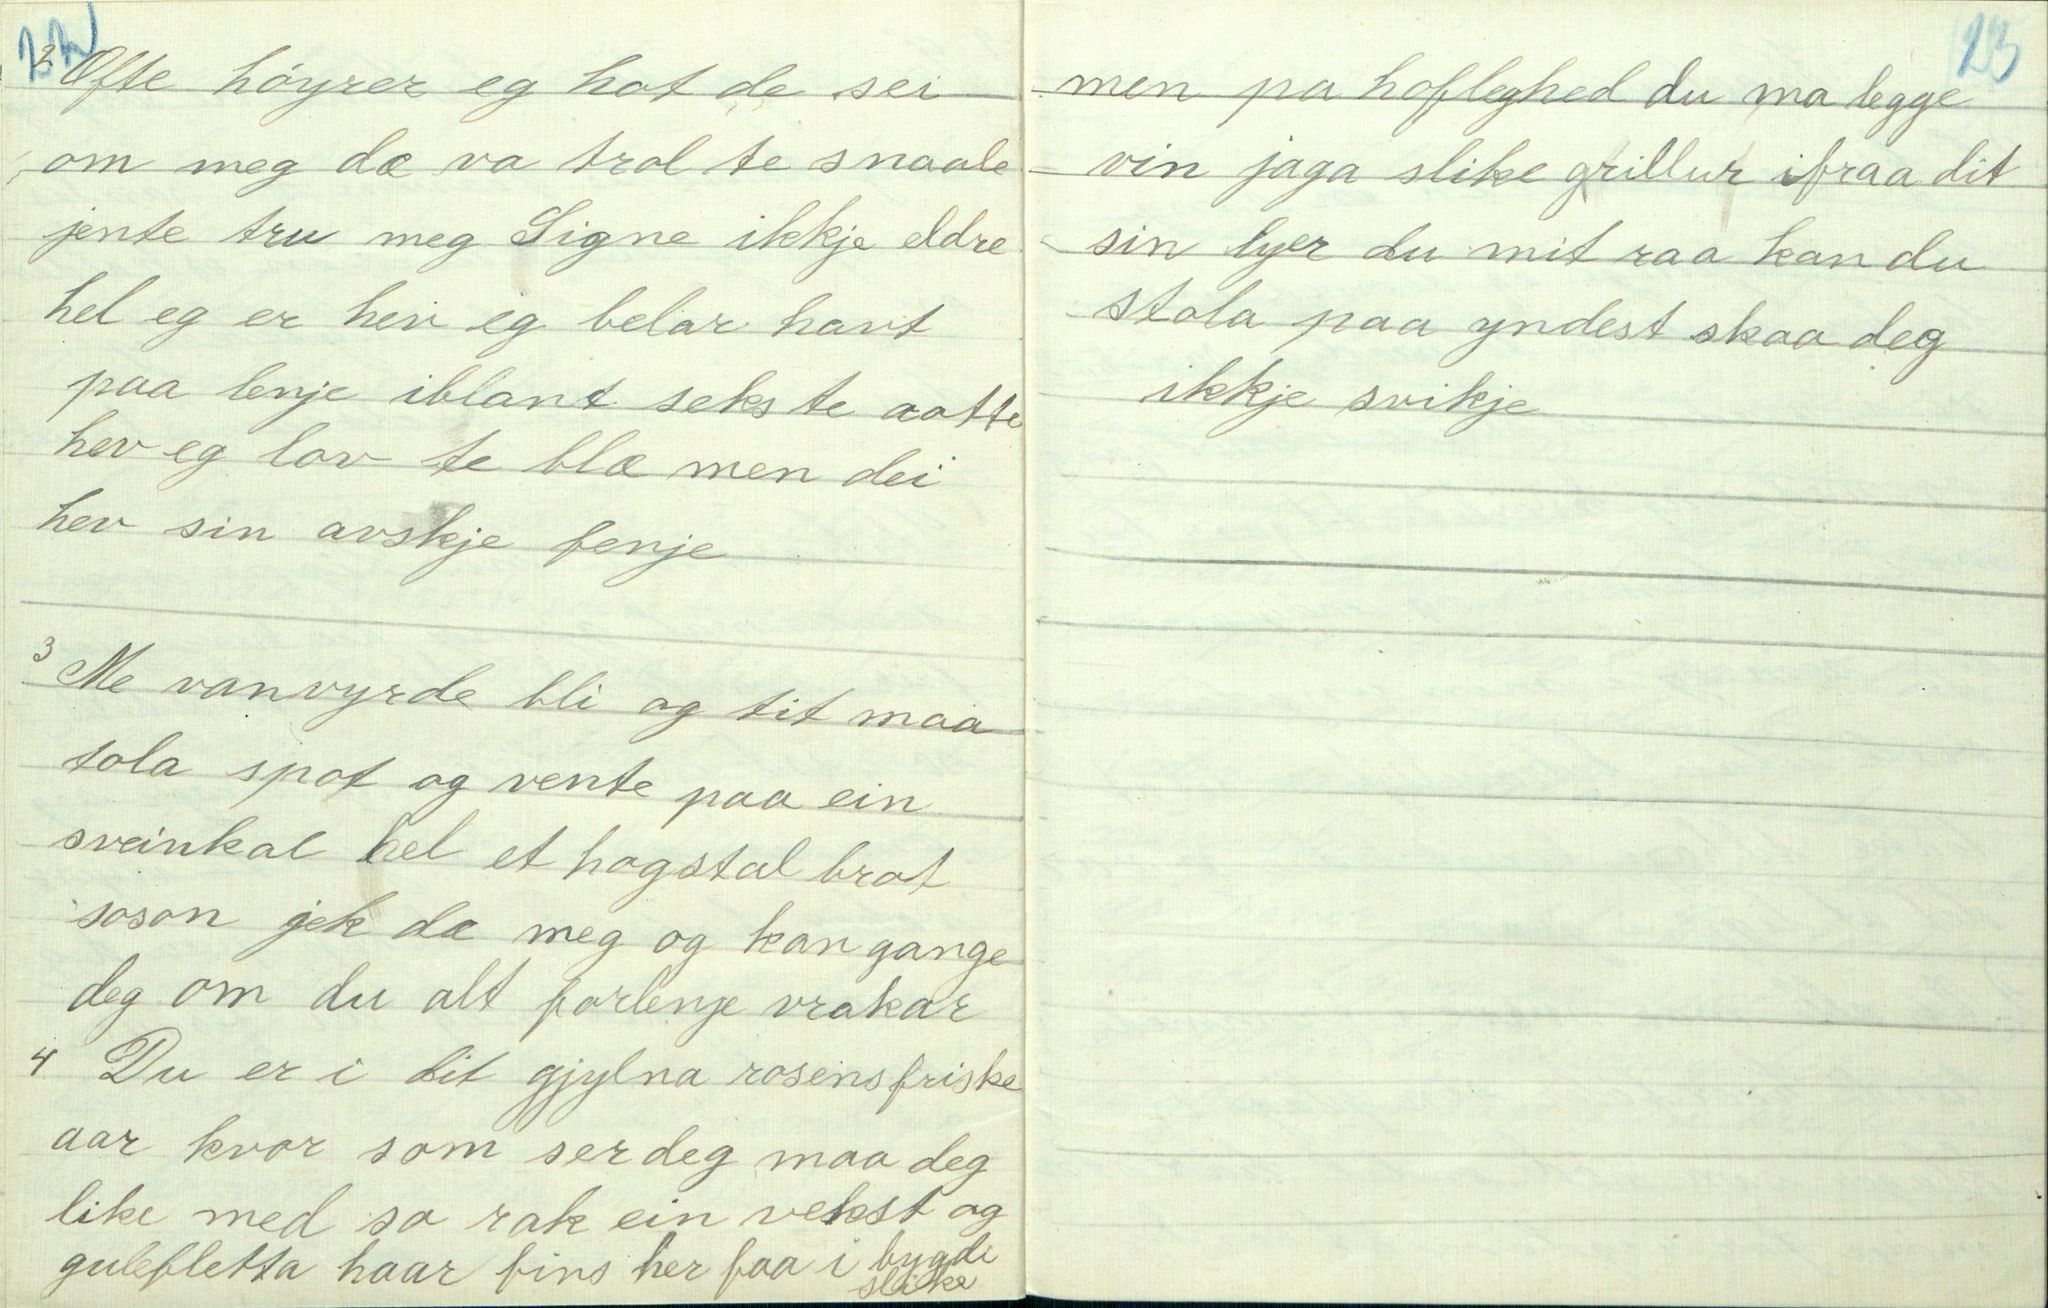 22
2 Ofte höyrer eg hot de sei
om meg dæ va trol te snaale
jente tru meg Signe ikkje eldre
hel eg er hev eg belar havt
paa lenje iblant seks te aatte
hev eg lov te blæ men dei
hev sin avskje fenje
3 Me vanvyrde bli og tit maa
tola spot og vente paa ein
sveinkal hel et hogstal brot
soson jek dæ meg og kan gange
deg om du alt forlenje vrakar
4 Du er i dit gjylna rosens friske
aar kvor som ser deg maa deg
like med so rak ein vekst og
gulefletta haar fins her faa i bygdi
slike
23
men pa hofleghed du ma legge
vin jaga slike grillur ifraa dit
sin lyer du mit raa kan du
stola paa yndest skaa deg
ikkje svikje